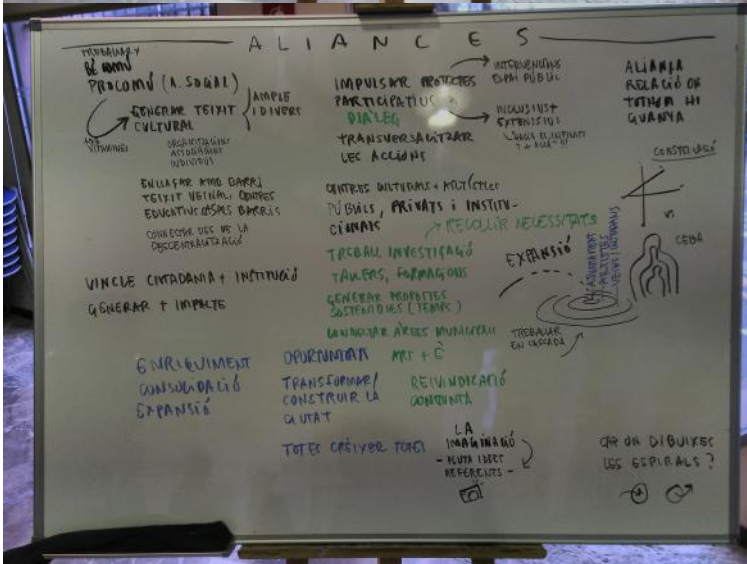 ALIANCES
BÉ COMÚ
PROCOMÚ (A. SOCIAL)
GENERAR TEIXIT
CULTURAL
AMPLE
I DIVERS
ORGANITZACIONS
INDIVIDUS
ENLLAÇAR AMB BARRI
TEIXIT VEINAL, CENTRES
EDUCATIUS CASALS BARRIS
CONNECTAR DES DE LA
DESCENTRALITZACIÓ
VINCLE CIUTADANIA + INSTITUCIÓ
GENERAR + IMPACTE
IMPULSAR PROJECTES
PARTICIPATIUS
DIÀLEG
TRANSVERSALITZAR
LES ACCIONS
INTERVENCIONS
ESPAI PÚBLIC
INCLUSIUS +
EXTENSIUS
CENTRES CULTURALS + ARTÍSTICS
PÚBLICS, PRIVATS i INSTITU-
CIONALS
RECOLLIR NECESSITATS
TREBALL INVESTIGACIÓ
TALLERS, FORMACIONS
GENERAR PROPOSTES
SOSTENIDES (TEMPS)
CONNECTAR ÀREES MUNICIPALS
ALIANÇA
RELACIÓ ON
TOTHOM HI
GUANYA
CONSTEL·LACIÓ
VS
CEBA
EXPANSIÓ
AJUNTAMENT
ARTISTES
VEINS CIUTADANS
TREBALLAR
EN CASCADA
ENRIQUIMENT
CONSOLIDACIÓ
EXPANSIÓ
OPORTUNITAT
TRANSFORMAR/
CONSTRUIR LA
CIUTAT
TOTES CRÉIXER TOTES
ART + É
REIVINDICACIÓ
CONJUNTA
LA
IMAGINACIÓ
- PLUJA IDEES
REFERENTS -
CAP ON DIBUIXES
LES ESPIRALS?